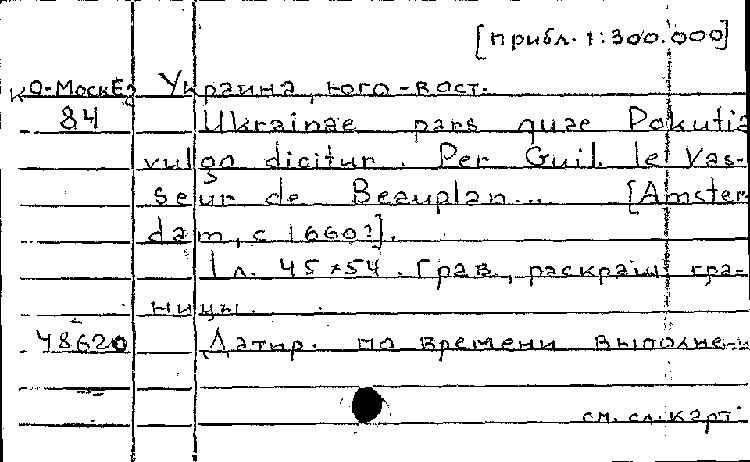 [прибл. 1:300.000]
КО-МоскЕ2 Украина, юго-вост.
84 Ukrainae pars quae Pokutia
vulgo dicitur. Per Guil. le Vas-
seur de Beauplan... [Amster-
dam, c 1660?].
1 л. 45×54. Грав., раскраш. гра-
ницы.
48620 Датир. по времени выполне-
см. сл. карт.